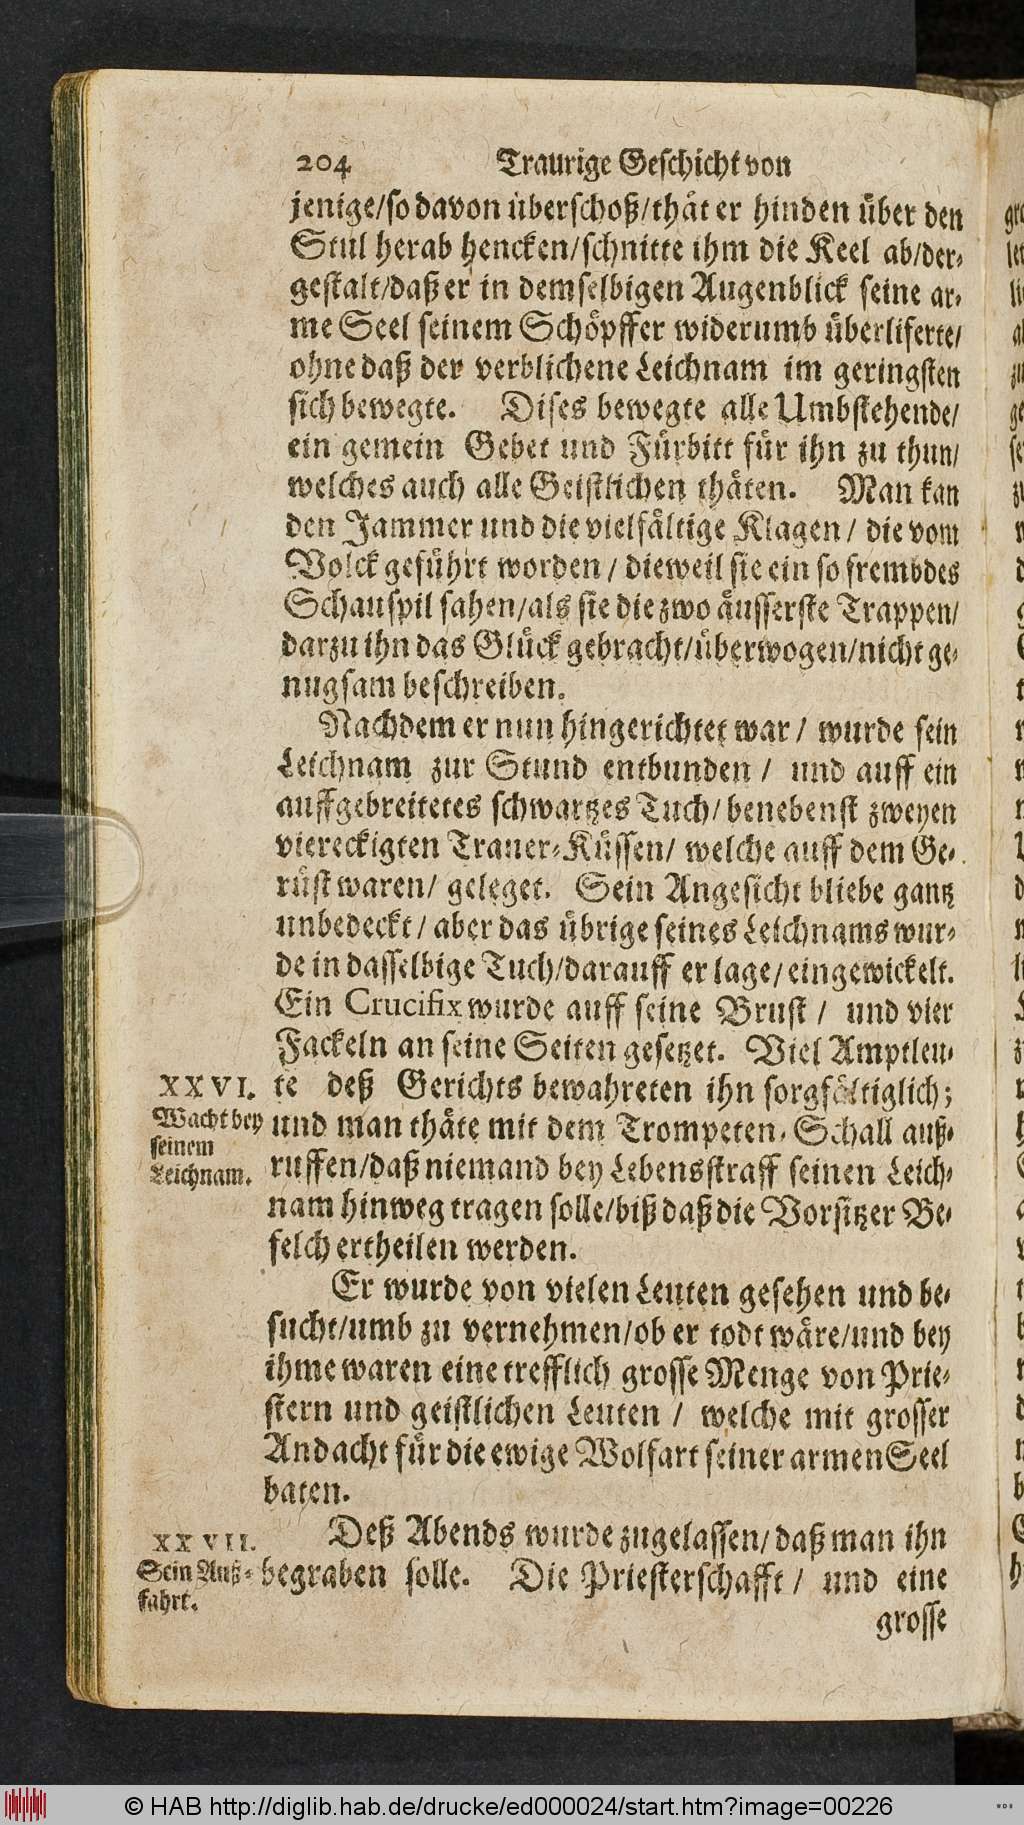 204 Traurige Geschicht von
jenige/so davon überschoß/thät er hinden über den
Stul herab hencken/schnitte ihm die Keel ab/der-
gestalt/daß er in demselbigen Augenblick seine ar-
me Seel seinem Schöpffer widerumb überliferte/
ohne daß der verblichene Leichnam im geringsten
sich bewegte. Dises bewegte alle Umbstehende/
ein gemein Gebet und Fürbitt für ihn zu thun/
welches auch alle Geistlichen thäten. Man kan
den Jammer und die vielfältige Klagen / die vom
Volck geführt worden / dieweil sie ein so frembdes
Schauspil sahen/als sie die zwo äusserste Trappen/
darzu ihn das Glück gebracht/überwogen/nicht ge-
nugsam beschreiben.
Nachdem er nun hingerichtet war / wurde sein
Leichnam zur Stund entbunden / und auff ein
auffgebreitetes schwartzes Tuch/ benebenst zweyen
viereckigten Trauer-Küssen/ welche auff dem Ge-
rüst waren/ geleget. Sein Angesicht bliebe gantz
unbedeckt / aber das übrige seines Leichnams wur-
de in dasselbige Tuch/darauff er lage/eingewickelt.
Ein Crucifix wurde auff seine Brust / und vier
Fackeln an seine Seiten gesetzet. Viel Amptleu-
XXVI. te deß Gerichts bewahreten ihn sorgfältiglich;
Wacht bey
seinem
Leichnam.
und man thäte mit dem Trompeten-Schall auß-
ruffen/daß niemand bey Lebensstraff seinen Leich-
nam hinweg tragen solle/biß daß die Vorsitzer Be-
felch ertheilen werden.
Er wurde von vielen Leuten gesehen und be-
sucht/umb zu vernehmen/ob er todt wäre/und bey
ihme waren eine trefflich grosse Menge von Prie-
stern und geistlichen Leuten / welche mit grosser
Andacht für die ewige Wolfart seiner armen Seel
baten.
XXVII. Deß Abends wurde zugelassen/daß man ihn
Sein Auß-
fahrt.
begraben solle. Die Priesterschafft / und eine
grosse
© HAB http://diglib.hab.de/drucke/ed000024/start.htm?image=00226